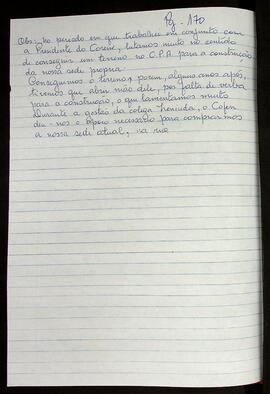 Pg. 170
Obs: no período em que trabalhei em conjunto com
a Presidente do Coren, lutamos muito no sentido
de conseguir um terreno no C.P.A. para a construção
da nossa sede própria.
Conseguimos o terreno, porém, alguns anos após,
tivemos que abrir mão dele, por falta de verba
para a construção, o que lamentamos muito
Durante a gestão da colega, o Cofen
deu-nos o apoio necessário para comprarmos
a nossa sede atual, na rua